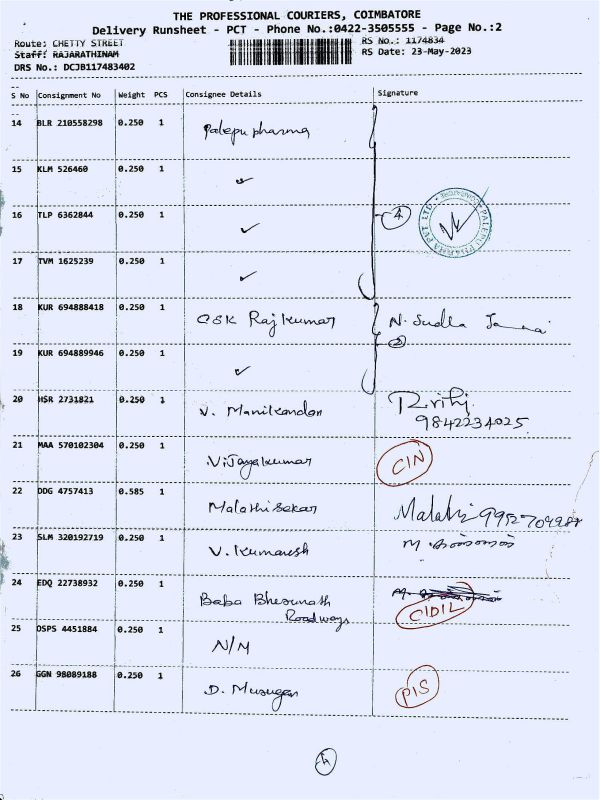 THE PROFESSIONAL COURIERS, COIMBATORE
Delivery Runsheet - PCT - Phone No.:0422-3505555 - Page No.:2
Route: CHETTY STREET RS No.: 1174834
Staff: RAJARATHINAM RS Date: 23-May-2023
DRS No.: DCJB117483402
S No Consignment No Weight PCS Consignee Details Signature
14 BLR 210558298 0.250 1 Palepu pharma
15 KLM 526460 0.250 1 ✓
16 TLP 6362844 0.250 1 ✓ 4
PALEPU PHARMA PVT LTD. COIMBATORE
17 TVM 1625239 0.250 1 ✓
18 KUR 694888418 0.250 1 GSK Raj kumar N. Sudha
19 KUR 694889946 0.250 1 ✓ 2
20 HSR 2731821 0.250 1 V. Manikandan
9842234025
21 MAA 570102304 0.250 1 Vijayakumar CIN
22 DDG 4757413 0.585 1 Malathi sekar Malathi
23 SLM 320192719 0.250 1 V. Kumaresh
24 EDQ 22738932 0.250 1 Baba Bhesunath
Roadways CIDIL
25 OSPS 4451884 0.250 1 N/M
26 GGN 98089188 0.250 1 D. Murugan PIS